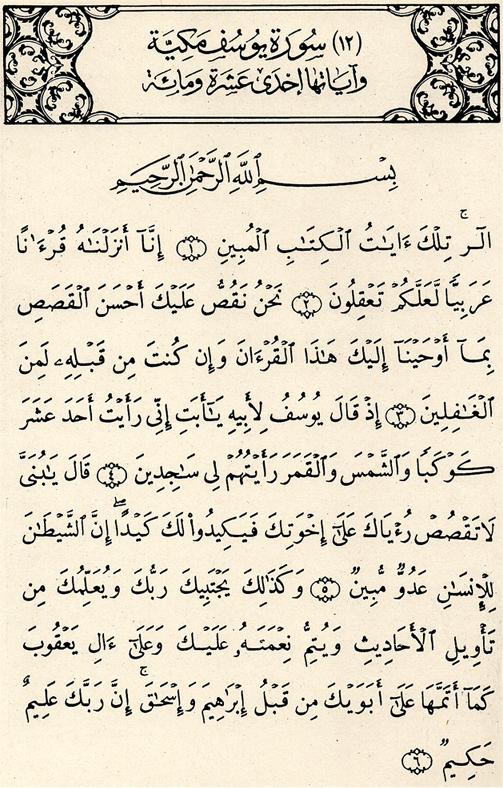 (١٢) سُورَة يُوسُف مَكيَّة
وَآيَاتهَا إحْدَى عَشرَة وَمِائة
بِسْمِ ٱللَّهِ ٱلرَّحْمَٰنِ ٱلرَّحِيمِ
الٓرۚ تِلْكَ ءَايَٰتُ ٱلْكِتَٰبِ ٱلْمُبِينِ ۝١ إِنَّآ أَنزَلْنَٰهُ قُرْءَٰنًا
عَرَبِيًّا لَّعَلَّكُمْ تَعْقِلُونَ ۝٢ نَحْنُ نَقُصُّ عَلَيْكَ أَحْسَنَ ٱلْقَصَصِ
بِمَآ أَوْحَيْنَآ إِلَيْكَ هَٰذَا ٱلْقُرْءَانَ وَإِن كُنتَ مِن قَبْلِهِۦ لَمِنَ
ٱلْغَٰفِلِينَ ۝٣ إِذْ قَالَ يُوسُفُ لِأَبِيهِ يَٰٓأَبَتِ إِنِّي رَأَيْتُ أَحَدَ عَشَرَ
كَوْكَبًا وَٱلشَّمْسَ وَٱلْقَمَرَ رَأَيْتُهُمْ لِي سَٰجِدِينَ ۝٤ قَالَ يَٰبُنَيَّ
لَا تَقْصُصْ رُءْيَاكَ عَلَىٰٓ إِخْوَتِكَ فَيَكِيدُوا۟ لَكَ كَيْدًاۖ إِنَّ ٱلشَّيْطَٰنَ
لِلْإِنسَٰنِ عَدُوٌّ مُّبِينٌ ۝٥ وَكَذَٰلِكَ يَجْتَبِيكَ رَبُّكَ وَيُعَلِّمُكَ مِن
تَأْوِيلِ ٱلْأَحَادِيثِ وَيُتِمُّ نِعْمَتَهُۥ عَلَيْكَ وَعَلَىٰٓ ءَالِ يَعْقُوبَ
كَمَآ أَتَمَّهَا عَلَىٰٓ أَبَوَيْكَ مِن قَبْلُ إِبْرَٰهِيمَ وَإِسْحَٰقَۚ إِنَّ رَبَّكَ عَلِيمٌ
حَكِيمٌ ۝٦